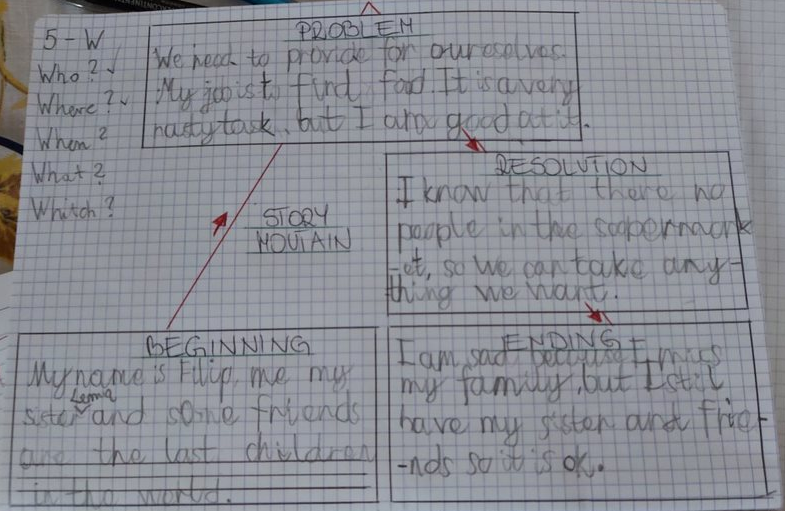 5-W
Who? ✓
Where? ✓
When?
What?
Whitch?
PROBLEM
We need to provide for ourselves.
My job is to find food. It is a very
task, but I am good at it.
STORY
MOUTAIN
RESOLUTION
I know that there no
people in the soopermark
-et, so we can take any-
thing we want.
BEGINNING
My name is Filip, me my
sister Lema and some friends
are the last children
in the world.
ENDING
I am sad because I miss
my family, but I still
have my sister and frie-
-nds so it is ok.